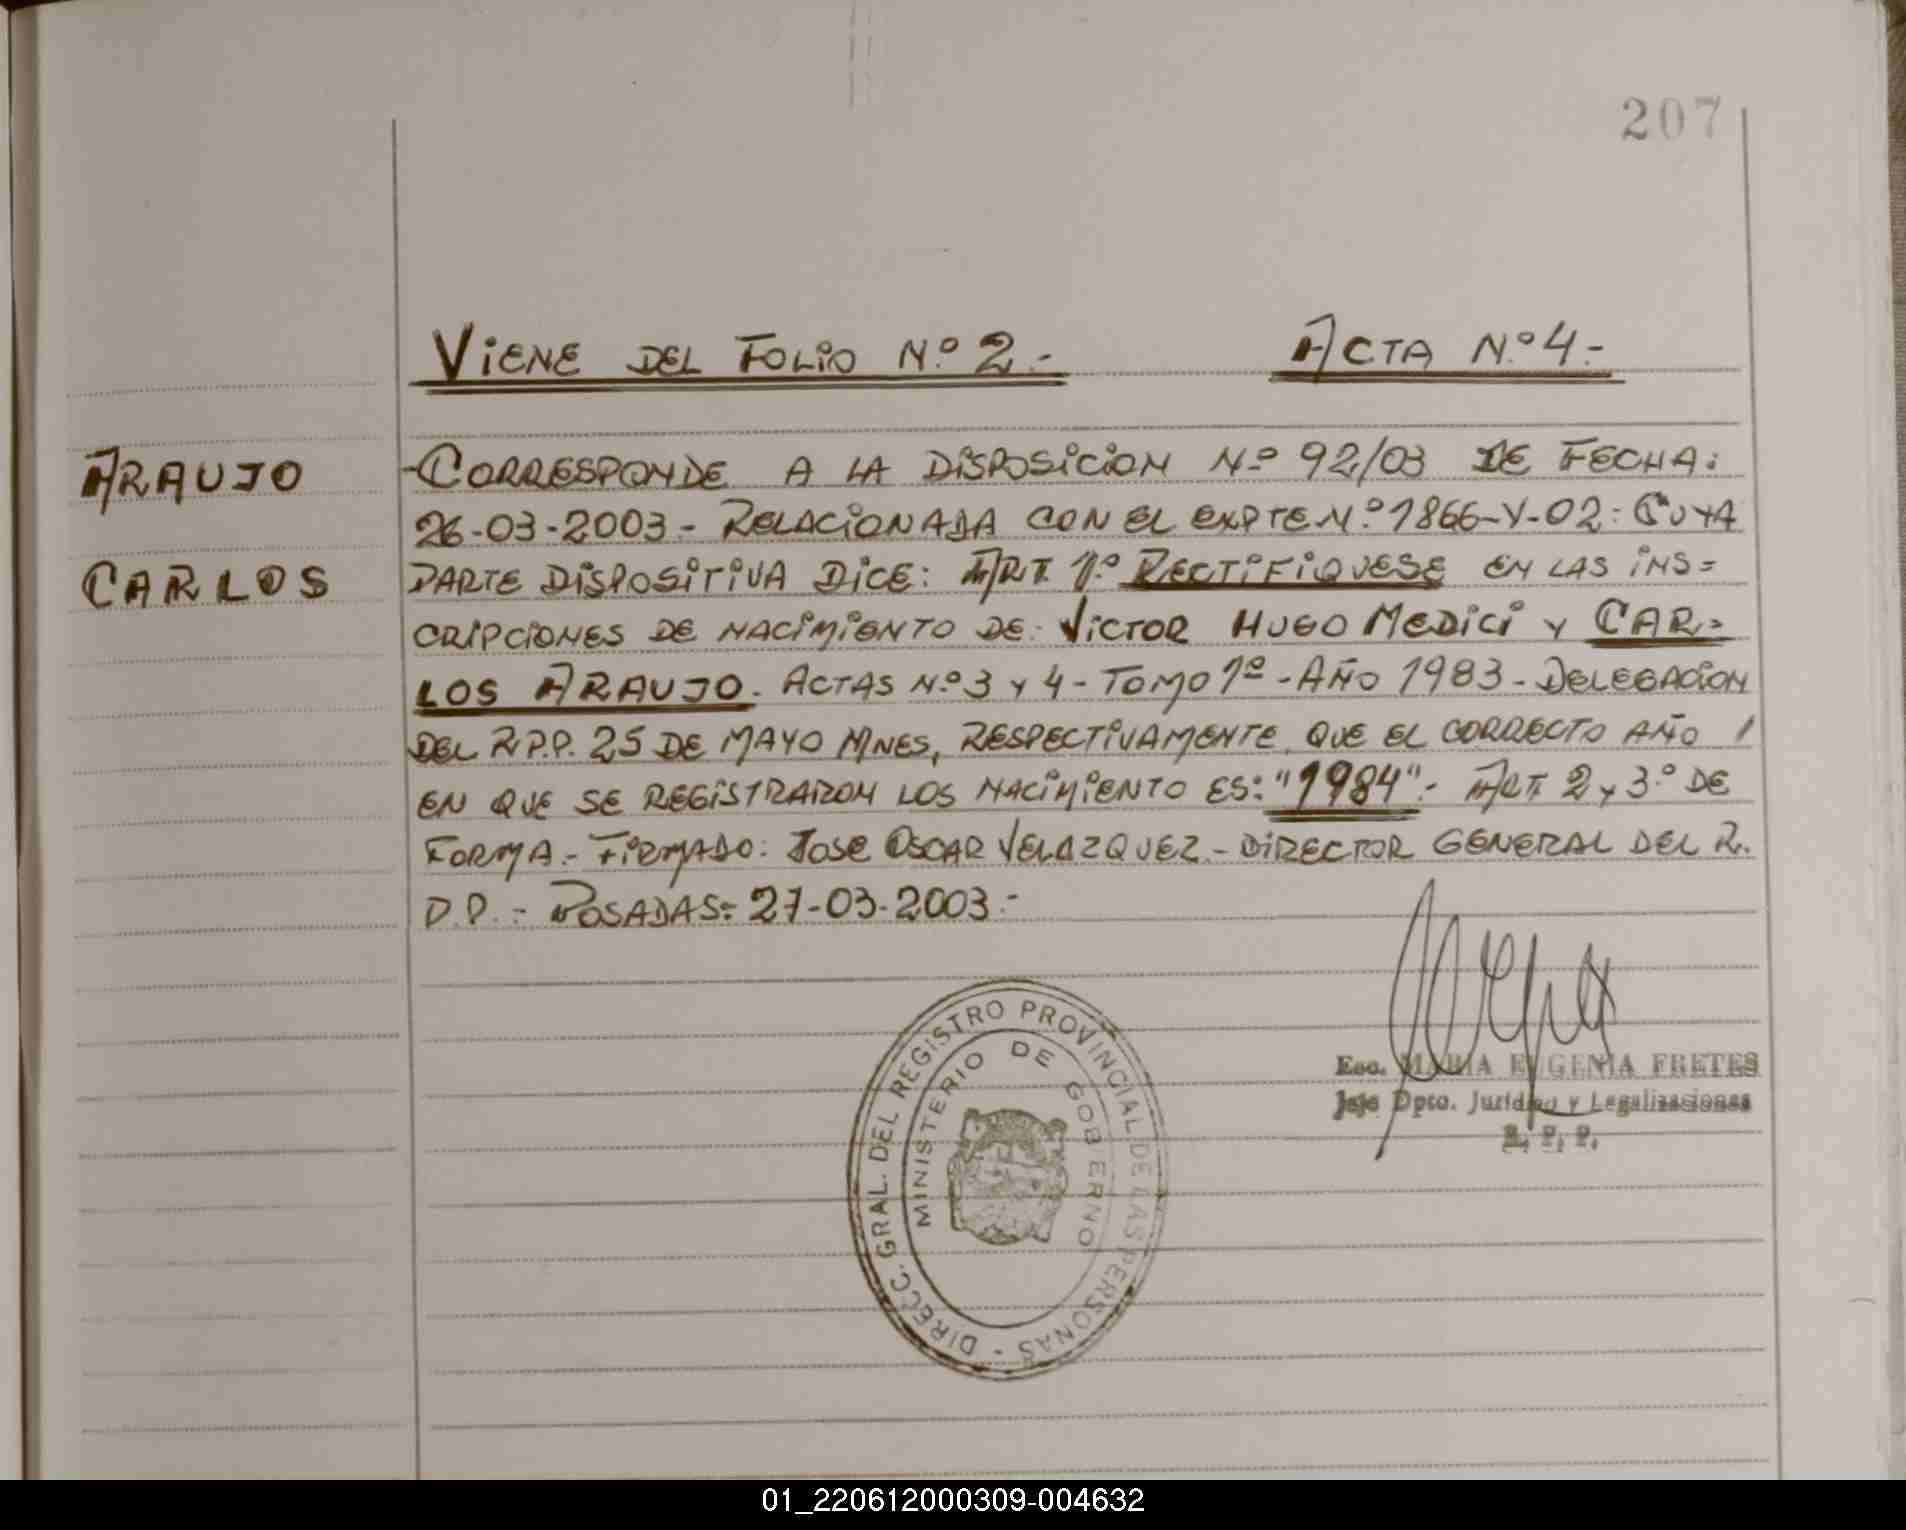 207
VIENE DEL FOLIO N.º 2.- ACTA N.º 4.-
ARAUJO
CARLOS
-CORRESPONDE A LA DISPOSICION N.º 92/03 DE FECHA:
26-03-2003.- RELACIONADA CON EL EXPTE N.º 1866-Y-02: CUYA
PARTE DISPOSITIVA DICE: ART. 1.º RECTIFIQUESE EN LAS INS=
CRIPCIONES DE NACIMIENTO DE: VICTOR HUGO MEDICI Y CAR-
LOS ARAUJO. ACTAS N.º 3 Y 4 - TOMO 1º - AÑO 1983 - DELEGACION
DEL R.P.P. 25 DE MAYO MNES, RESPECTIVAMENTE, QUE EL CORRECTO AÑO /
EN QUE SE REGISTRARON LOS NACIMIENTO ES: "1984".- ART. 2 Y 3.º DE
FORMA.- FIRMADO: JOSE OSCAR VELAZQUEZ.- DIRECTOR GENERAL DEL R.
P.P.- POSADAS: 27-03-2003.-
Esc. MARIA EUGENIA FRETES
Jefe Dpto. Jurídico y Legalizaciones
R. P. P.
DIRECC. GRAL. DEL REGISTRO PROVINCIAL DE LAS PERSONAS -
MINISTERIO DE GOBIERNO
01_220612000309-004632